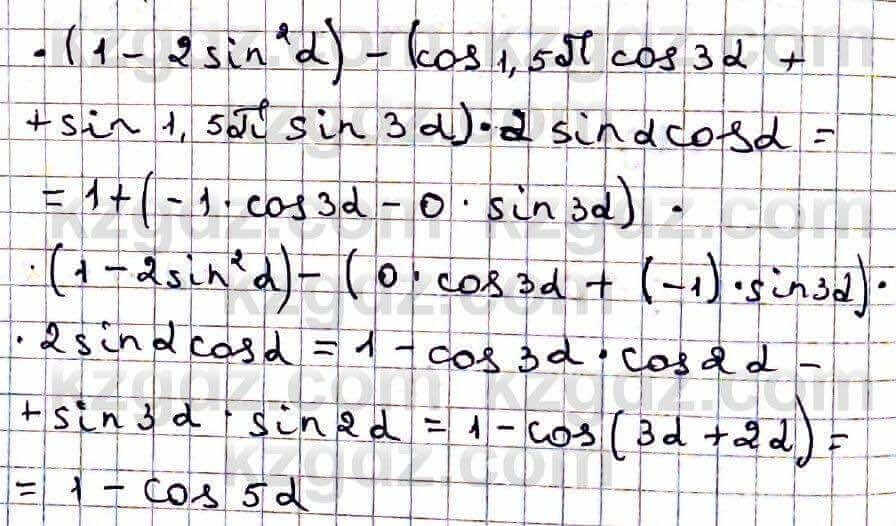 · (1 - 2 sin²α) - (cos 1,5π cos 3α +
+ sin 1,5π sin 3α) · 2 sinα cosα =
= 1 + (-1 · cos3α - 0 · sin 3α) ·
· (1 - 2sin²α) - (0 · cos 3α + (-1) · sin3α) ·
· 2sinα cosα = 1 - cos 3α · cos 2α -
+ sin3α · sin2α = 1 - cos(3α + 2α) =
= 1 - cos 5α